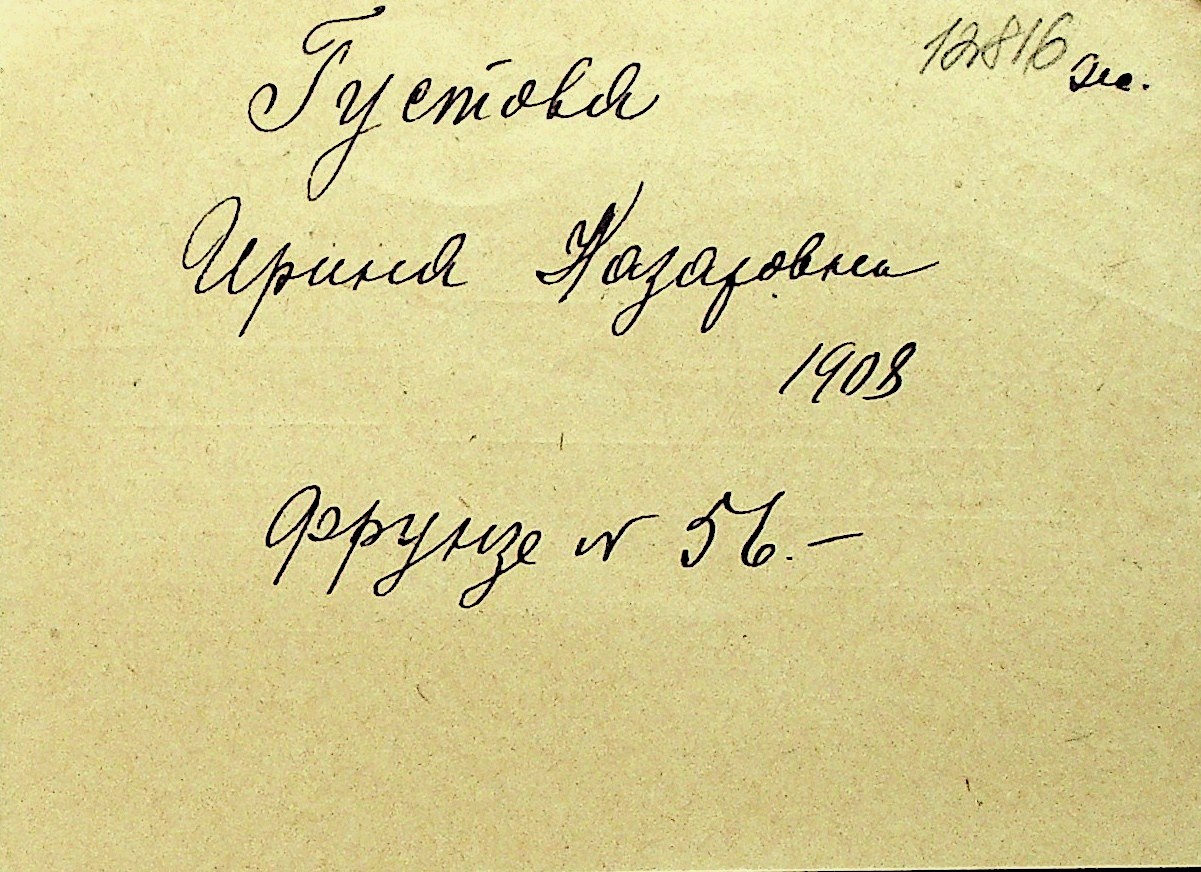 12816 эк.
Густова
Ирина Назаровна
1908
Фрунзе N 56.—